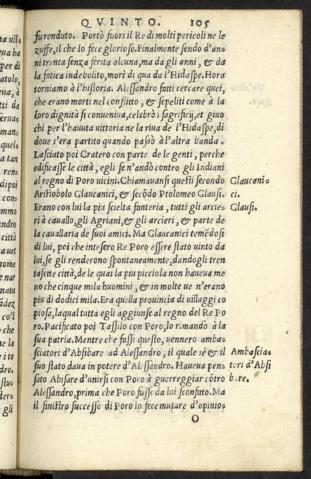 QVINTO. 105
fu renduto. Portò fuori il Re di molti pericoli ne le
zuffe, il che lo fece glorioso. Finalmente sendo d'an-
ni trenta senza ferita alcuna, ma da gli anni, & da
la fatica indebolito, morì di qua da l'Hidaspe. Hora
torniamo à l'historia. Alessandro fatti cercare quei,
che erano morti nel conflitto, & sepeliti come à la
loro dignità si conueniua, celebrò i sagrificij, et giuo
chi per l'hauuta vittoria ne la riua de l'Hidaspe, di
doue s'era partito quando passò à l'altra banda.
Lasciato poi Cratero con parte de le genti, perche
edificasse le città, egli se n'andò contro gli Indiani
al regno di Poro uicini. Chiamauansi questi secondo
Aristobolo Glaucanici, & secõdo Ptolomeo Glausi.
Glaucani-
ci.
Glausi.
Erano con lui la piu scielta fanteria, tutti gli arcieri
à cauallo, gli Agriani, & gli arcieri, & parte de
la cauallaria de suoi amici. Ma Glaucanici temẽdosi
di lui, poi che intesero Re Poro essere stato uinto da
lui, se gli renderono spontaneamente, dandogli tren
tasette città, de le quai la piu picciola non haueua me
no che cinque mila huomini, & in molte ue n'erano
piu di dodici mila. Era quella prouincia di uillaggi co
piosa, laqual tutta egli aggiunse al regno del Re Po
ro. Pacificato poi Tassilo con Poro, lo rimandò à la
sua patria. Mentre che fussi questo, uennero amba-
sciatori d'Absibare ad Alessandro, il quale sè & il
suo stato daua in potere d'Alessandro. Haueua pen-
sato Absare d'unirsi con Poro à guerreggiar cõtro
Alessandro, prima che Poro fusse da lui sconfitto. Ma
il sinistro successo di Poro lo fece mutare d'opinio-
Ambascia-
tori d'Absi
bare.
O